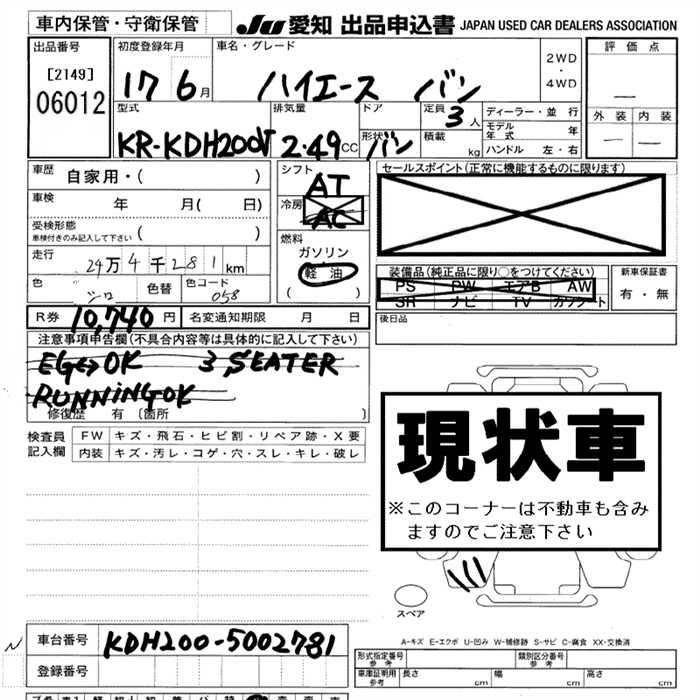 車内保管・守衛保管
JU 愛知 出品申込書 JAPAN USED CAR DEALERS ASSOCIATION
出品番号 初度登録年月 車名・グレード 評価点
[2149] 06012 17 6月 ハイエース バン 2WD・4WD
外装 内装
型式 排気量 ドア 定員 3人 ディーラー・並行
モデル年式 年
KR-KDH200V 2.49CC 形状 バン 積載 kg ハンドル 左・右
車歴 自家用・( ) シフト AT セールスポイント(正常に機能するものに限ります)
車検 年 月(日) 冷房 AC
受検形態 車検付きのみ記入して下さい ( ) 燃料 ガソリン
走行 24万4千281km 軽油 装備品(純正品に限り○をつけてください) 新車保証書
色 シロ 色替 色コード 058 ( ) PS PW エアB AW 有・無
SR ナビ TV カワシート
R券 10,740円 名変通知期限 月 日 後日品
注意事項申告欄(不具合内容等は具体的に記入して下さい)
EG↔OK 3 SEATER
RUNNING OK
修復歴 有 〔箇所 〕
検査員記入欄 FW キズ・飛石・ヒビ割・リペア跡・X要
内装 キズ・汚レ・コゲ・穴・スレ・キレ・破レ
現状車
※このコーナーは不動車も含み
ますのでご注意下さい
スペア
A-キズ E-エクボ U-凹み W-補修跡 S-サビ C-腐食 XX-交換済
車台番号 KDH200-5002781
登録番号
形式指定番号 参考 類別区分番号 参考
車庫証明用 参考 長さ cm 幅 cm 高さ cm